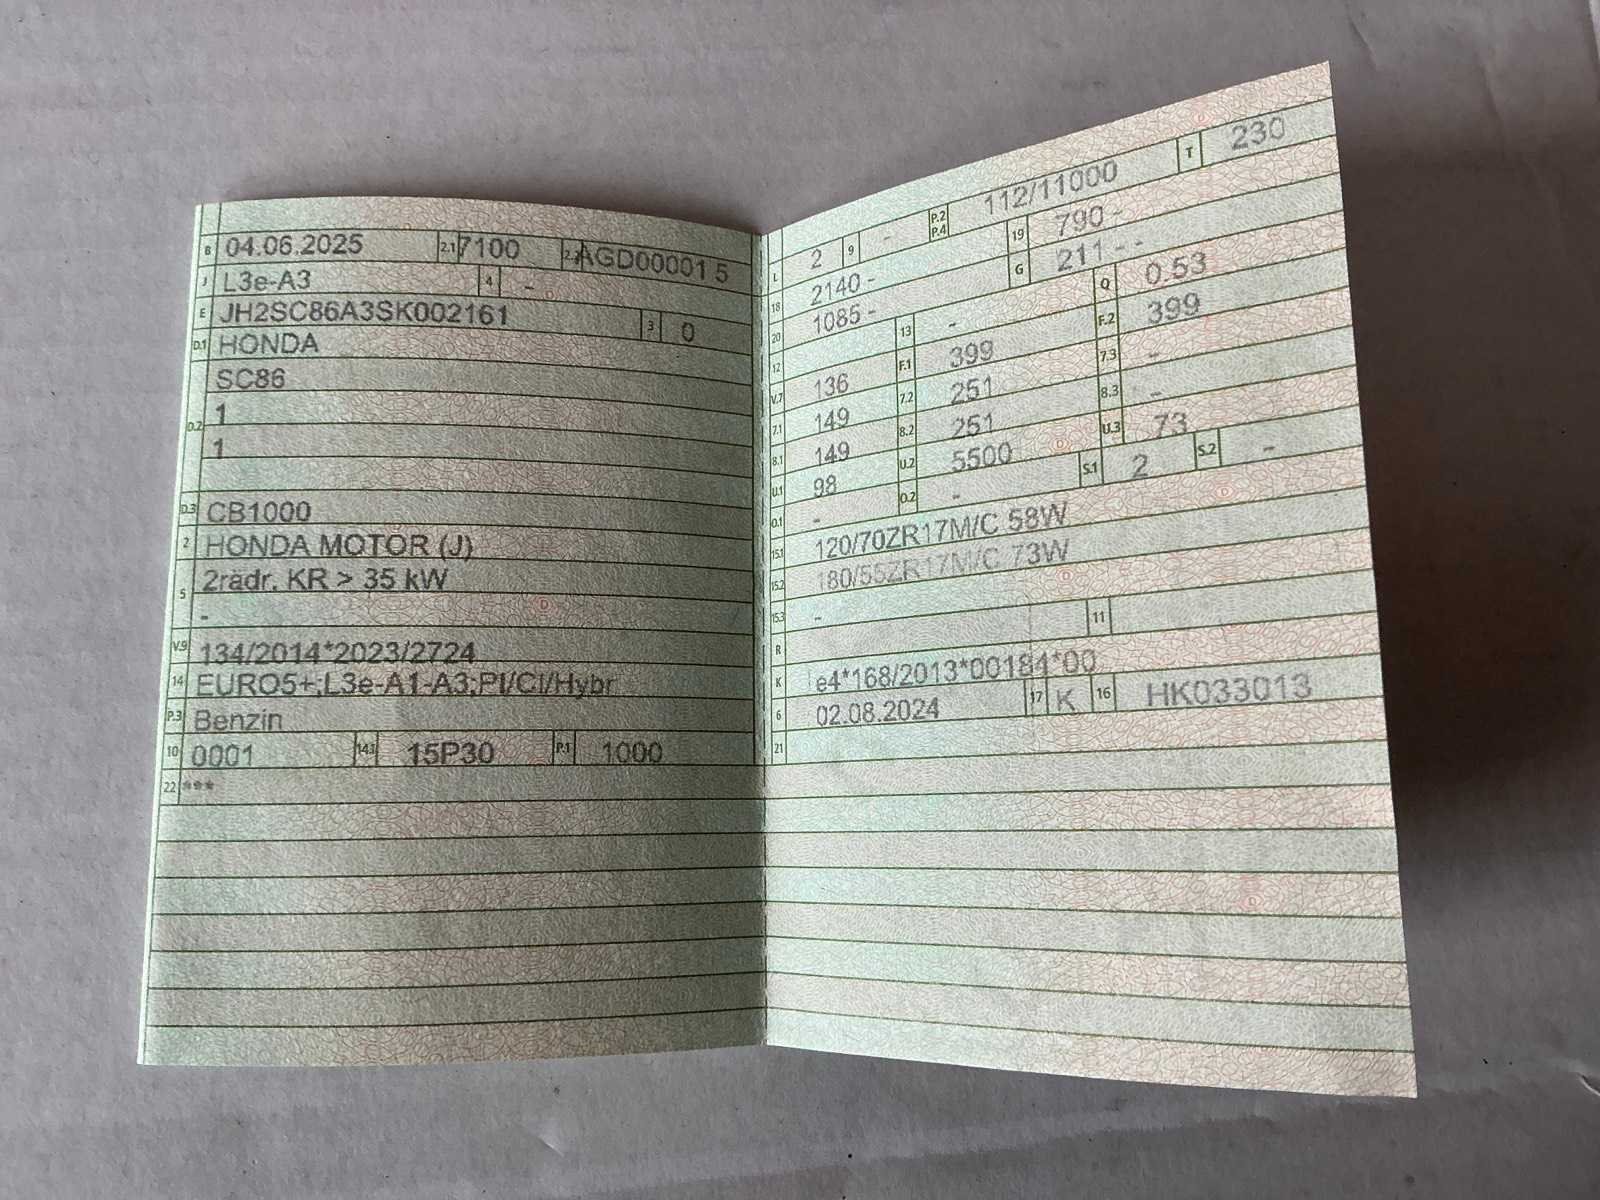 B 04.06.2025 2.1 7100 2.2 AGD000015
J L3e-A3 4 -
E JH2SC86A3SK002161 3 0
D.1 HONDA
D.2 SC86
1
1
D.3 CB1000
2 HONDA MOTOR (J)
5 2rädr. KR > 35 kW
-
V.9 134/2014*2023/2724
14 EURO5+;L3e-A1-A3;PI/CI/Hybr
P.3 Benzin
10 0001 14.1 15P30 P.1 1000
22 ***
L 2 9 - P.2 P.4 112/11000 T 230
18 2140 - 19 790 -
20 1085 - G 211 - -
12 13 - Q 0.53
V.7 136 F.1 399 F.2 399
7.1 149 7.2 251 7.3 -
8.1 149 8.2 251 8.3 -
U.1 98 U.2 5500 U.3 73
O.1 - O.2 - S.1 2 S.2 -
15.1 120/70ZR17M/C 58W
15.2 180/55ZR17M/C 73W
15.3 -
R 11
K e4*168/2013*00184*00
6 02.08.2024 17 K 16 HK033013
21